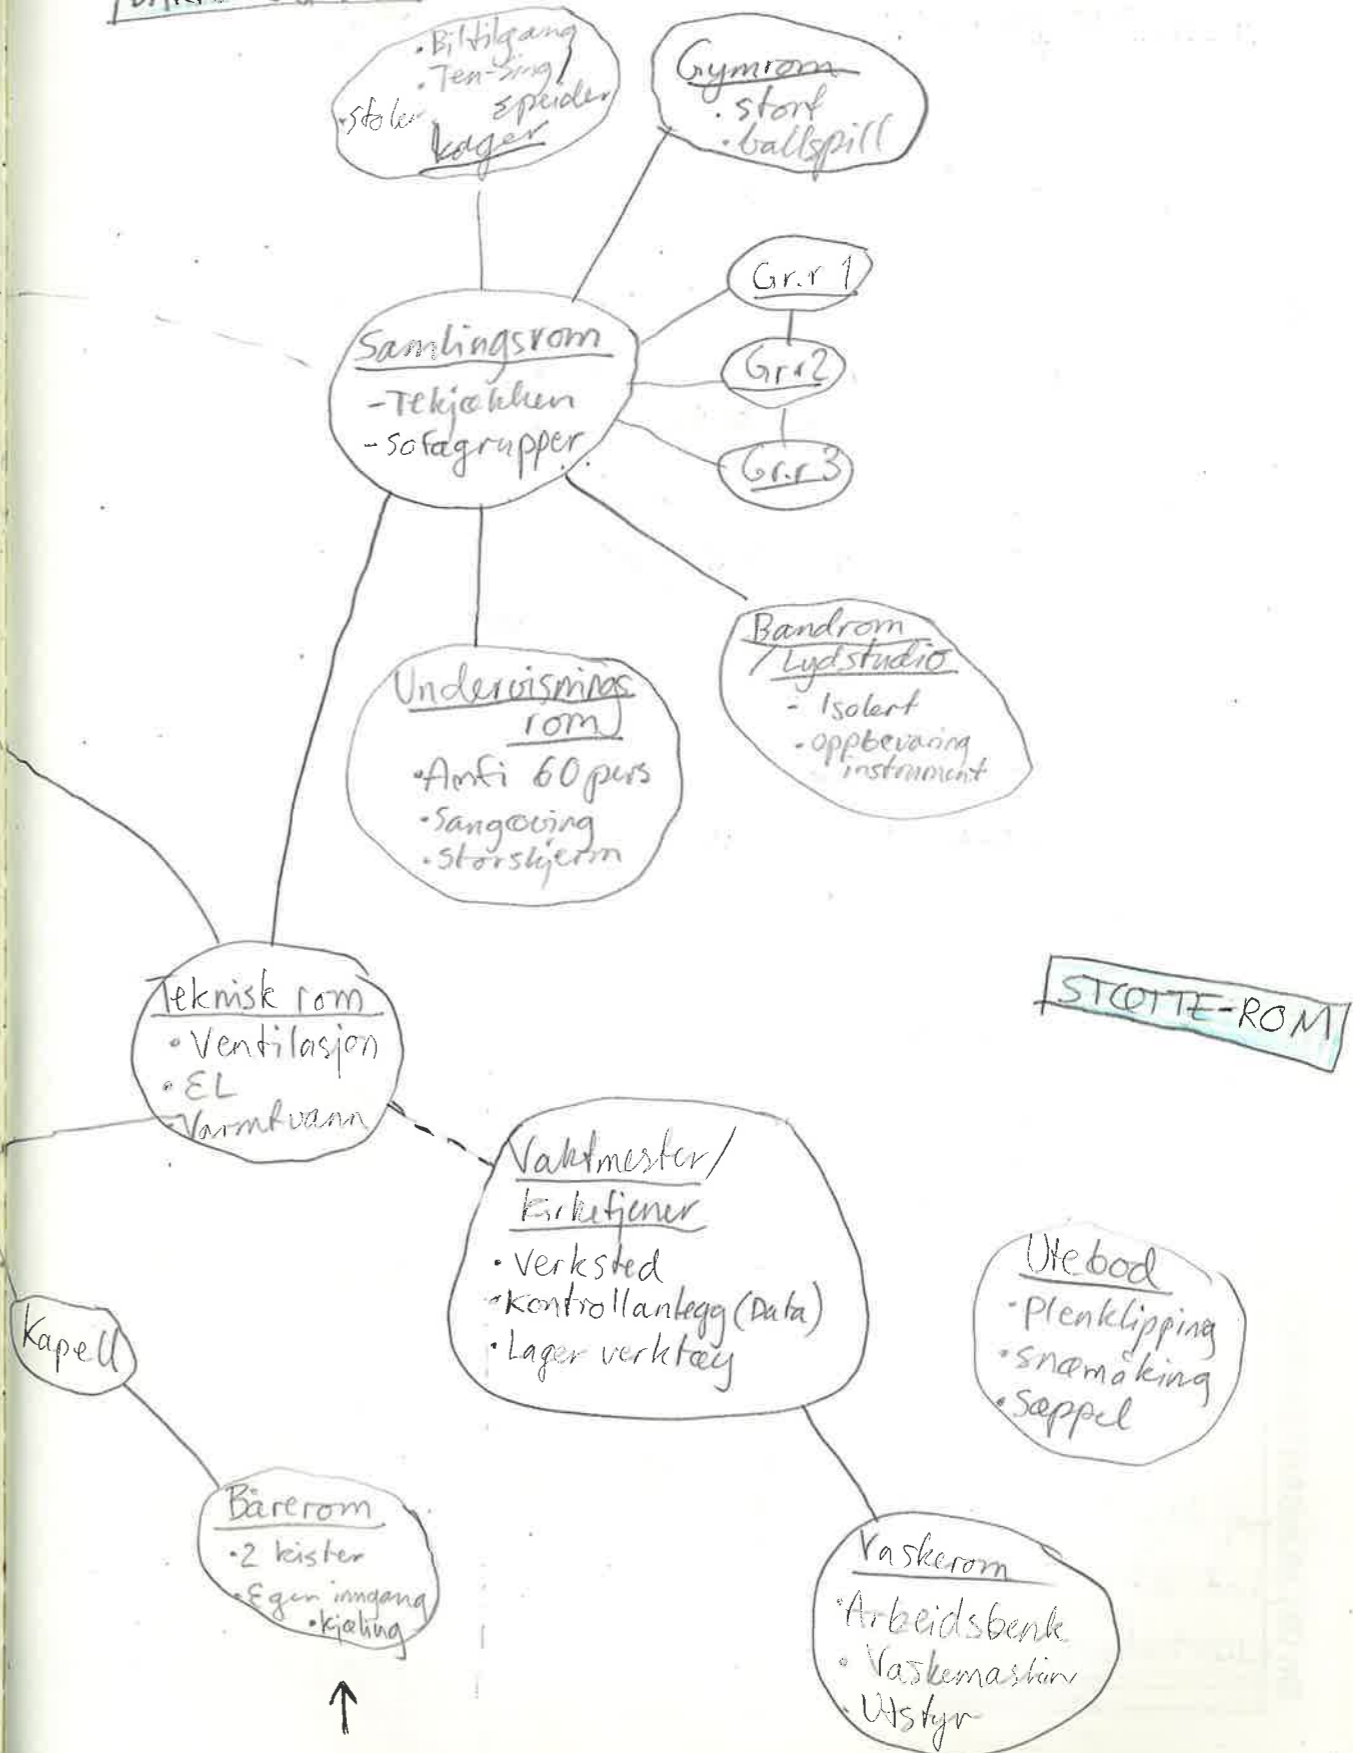 • Biltilgang
• Ten-Sing/
speider
• stoler
Lager
Gymrom
• stort
• ballspill
Gr.r 1
Samlingsrom
- Tekjøkken
- Sofagrupper
Gr.r 2
Gr.r 3
Bandrom
/ Lydstudio
- Isolert
• oppbevaring
instrument
Undervisnings
rom
• Amfi 60 pers
• Sangøving
• Storskjerm
Teknisk rom
• Ventilasjon
• EL
Varmtvann
STØTTE-ROM
Vaktmester/
Kirketjener
• Verksted
• Kontrollanlegg (Data)
• Lager verktøy
Utebod
• Plenklipping
• snømåking
• Søppel
Kapell
Bårerom
• 2 kister
• Egen inngang
• kjøling
Vaskerom
• Arbeidsbenk
• Vaskemaskin
• Utstyr